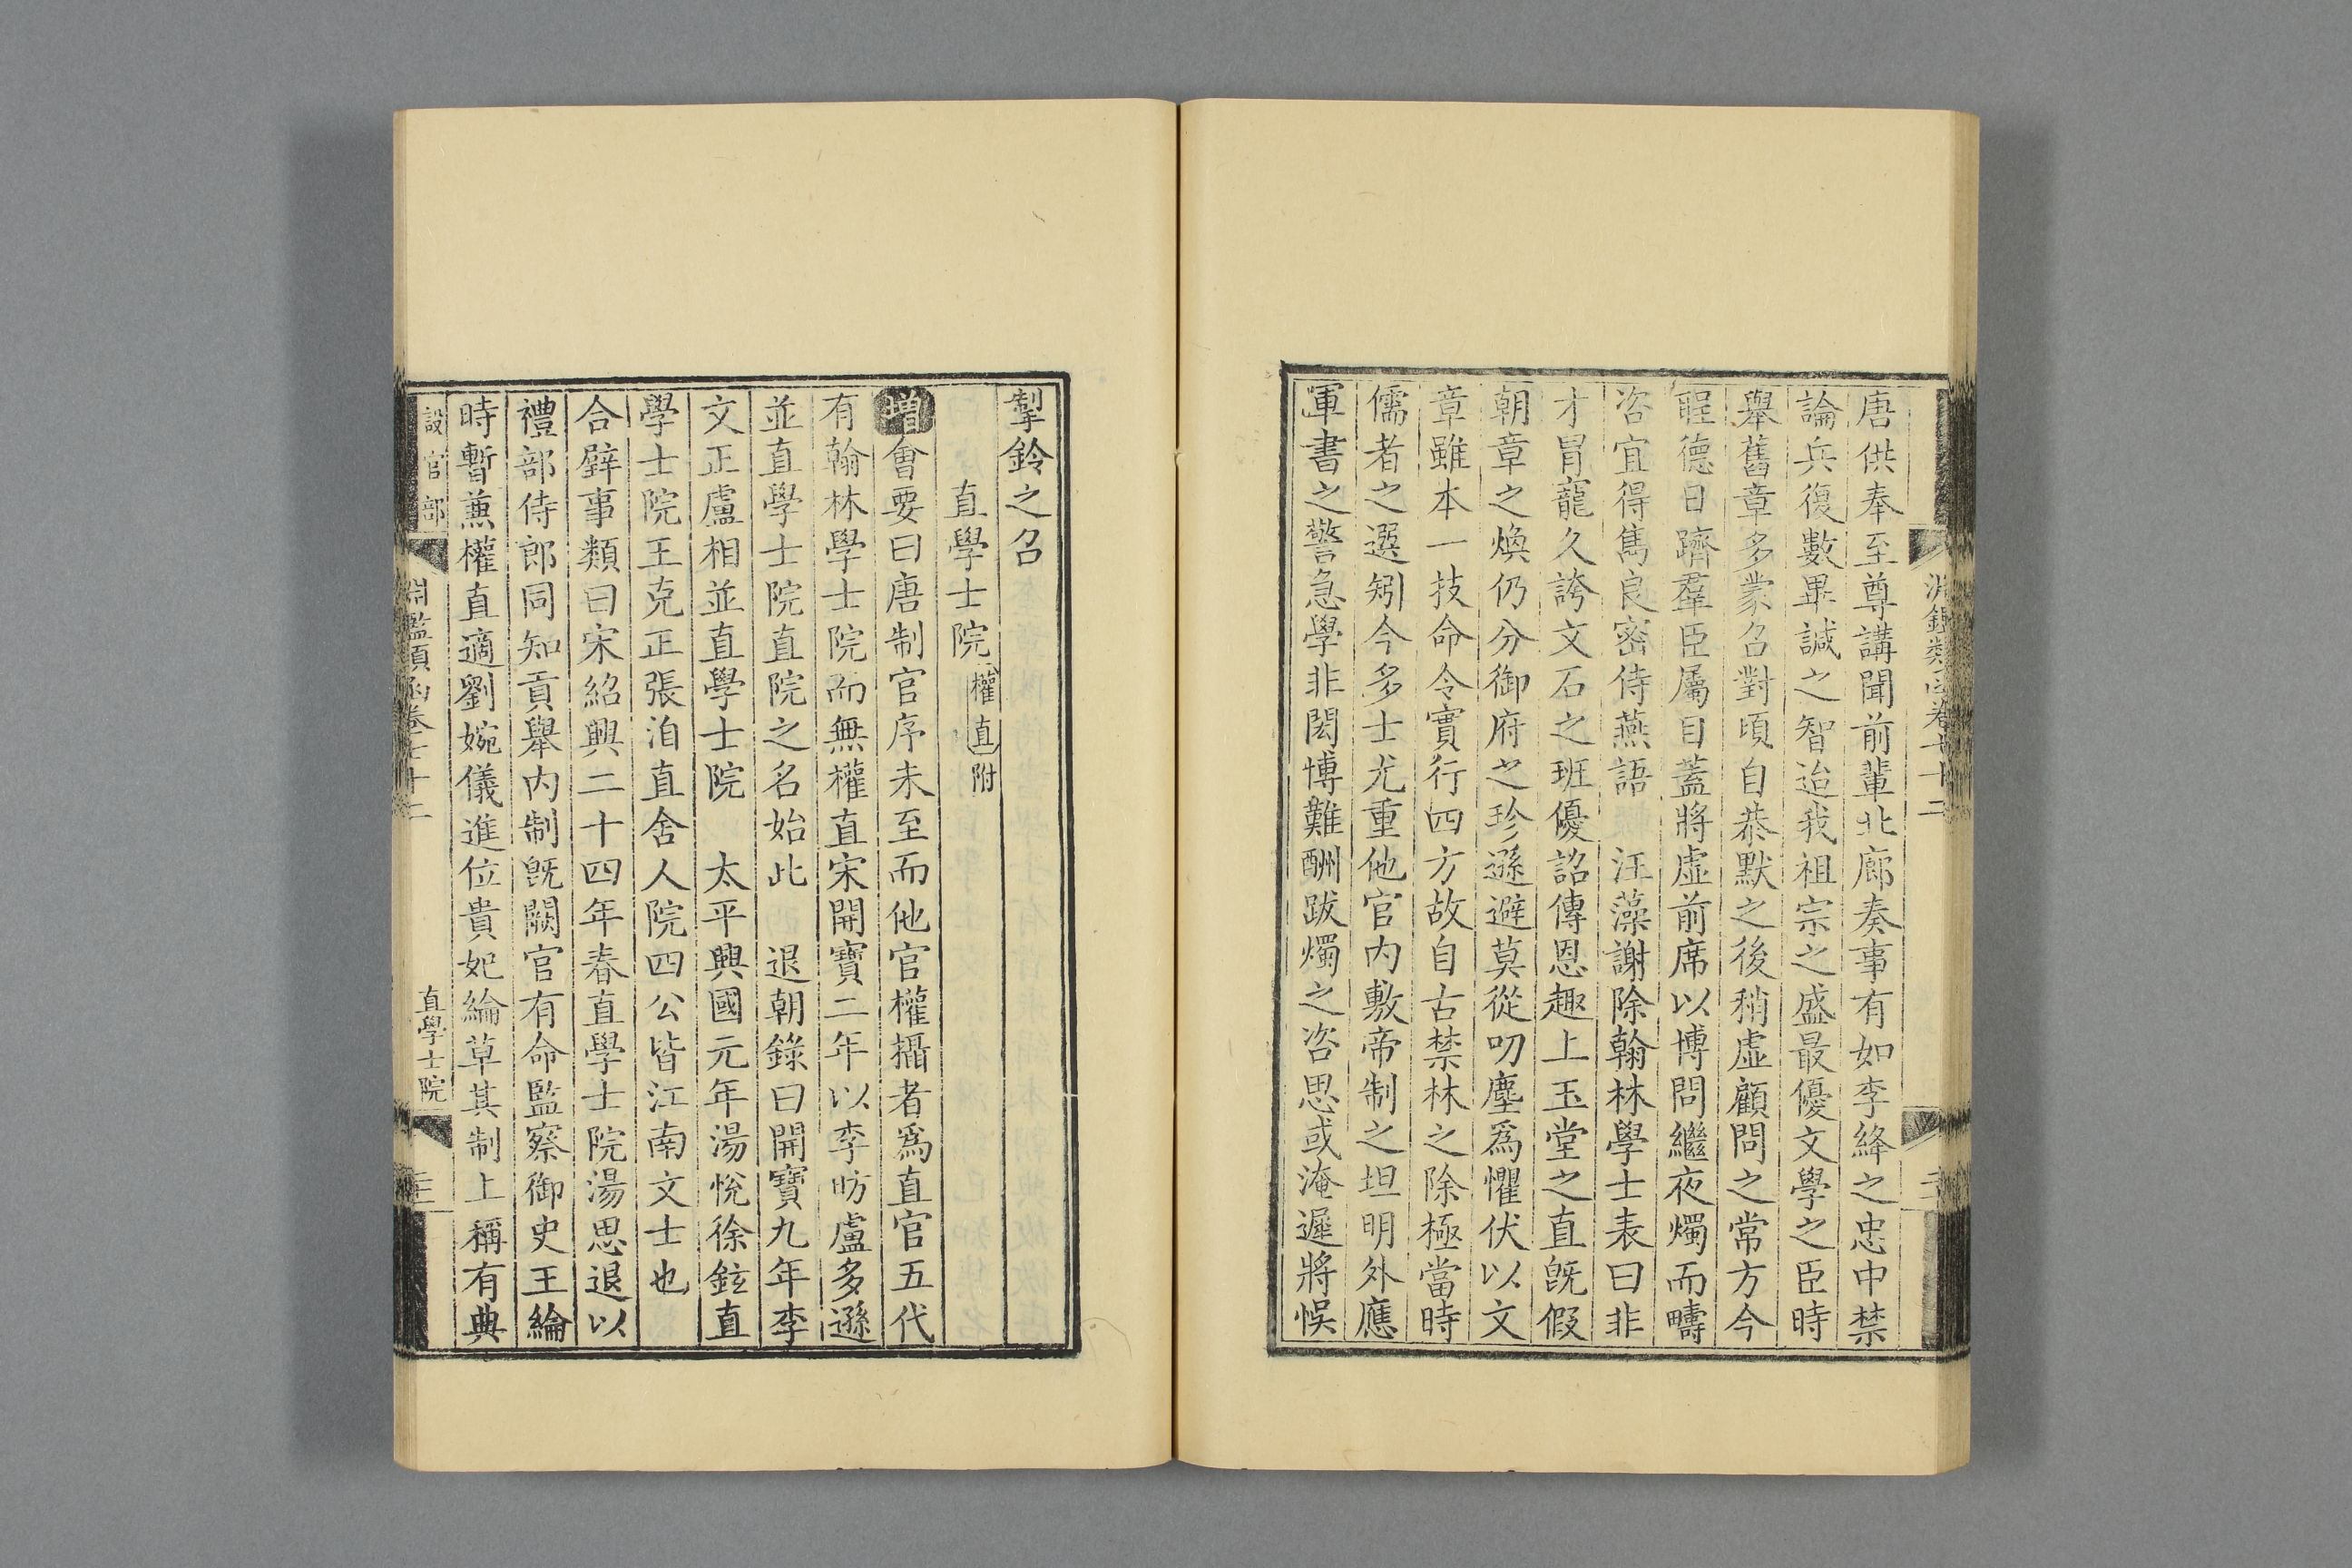 唐供奉至尊講聞前輩北廊奏事有如李絳之忠中禁
論兵復數畢諴之智迨我祖宗之盛最優文學之臣時
舉舊章多蒙召對頃自恭默之後稍虛顧問之常方今
聖德日躋羣臣屬目蓋將虛前席以博問繼夜燭而疇
咨宜得雋良密侍燕語 汪藻謝除翰林學士表曰非
才冒寵久誇文石之班優詔傳恩趣上玉堂之直旣假
朝章之煥仍分御府之珍遜避莫從叨塵爲懼伏以文
章雖本一技命令實行四方故自古禁林之除極當時
儒者之選矧今多士尤重他官内敷帝制之坦明外應
軍書之警急學非閎博難酬跋燭之咨思或淹遲將悞
掣鈴之召
直學士院權直附
增會要曰唐制官序未至而他官權攝者爲直官五代
有翰林學士院而無權直宋開寶二年以李昉盧多遜
並直學士院直院之名始此 退朝錄曰開寶九年李
文正盧相並直學士院 太平興國元年湯悅徐鉉直
學士院王克正張洎直舍人院四公皆江南文士也
合璧事類曰宋紹興二十四年春直學士院湯思退以
禮部侍郎同知貢舉内制旣闕官有命監察御史王綸
時暫蒹權直適劉婉儀進位貴妃綸草其制上稱有典
設官部 淵鑑類函卷七十二 直學士院 三